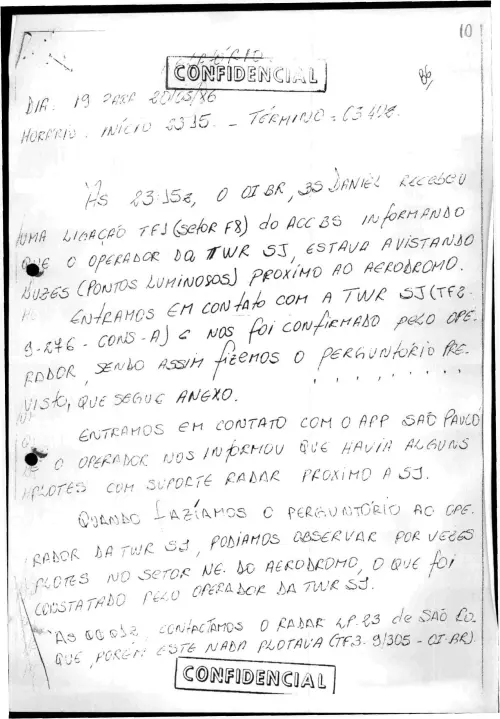 10
CONFIDENCIAL
DIA: 19 PARA 20/05/86
HORÁRIO: INÍCIO 2315. - TÉRMINO = 0340Z.
ÀS 23:15Z, O OI BR, 3S DANIEL RECEBEU
UMA LIGAÇÃO TF1 (setor F8) do ACC BS INFORMANDO
QUE O OPERADOR DA TWR SJ, ESTAVA AVISTANDO
LUZES (PONTOS LUMINOSOS) PROXIMO AO AERODROMO.
ENTRAMOS EM CONTATO COM A TWR SJ (TF2.
9-276 - CONS-A) E NOS foi CONFIRMADO PELO OPE-
RADOR, SENDO ASSIM fizemos O PERGUNTÓRIO PRE-
VISTO, QUE SEGUE ANEXO.
ENTRAMOS EM CONTATO COM O APP SÃO PAULO
E O OPERADOR NOS INFORMOU QUE HAVIA ALGUNS
PLOTES COM SUPORTE RADAR PROXIMO A SJ.
QUANDO FAZÍAMOS O PERGUNTÓRIO AO OPE-
RADOR DA TWR SJ, PODÍAMOS OBSERVAR POR VEZES
PLOTES NO SETOR NE. DO AERODROMO, O QUE foi
CONSTATADO PELO OPERADOR DA TWR SJ.
ÀS 00:01Z, CONTACTAMOS O RADAR LP.23 de SÃO
QUE, PORÉM ESTE NADA PLOTAVA (TF3-9/305 - OI-BR)
CONFIDENCIAL